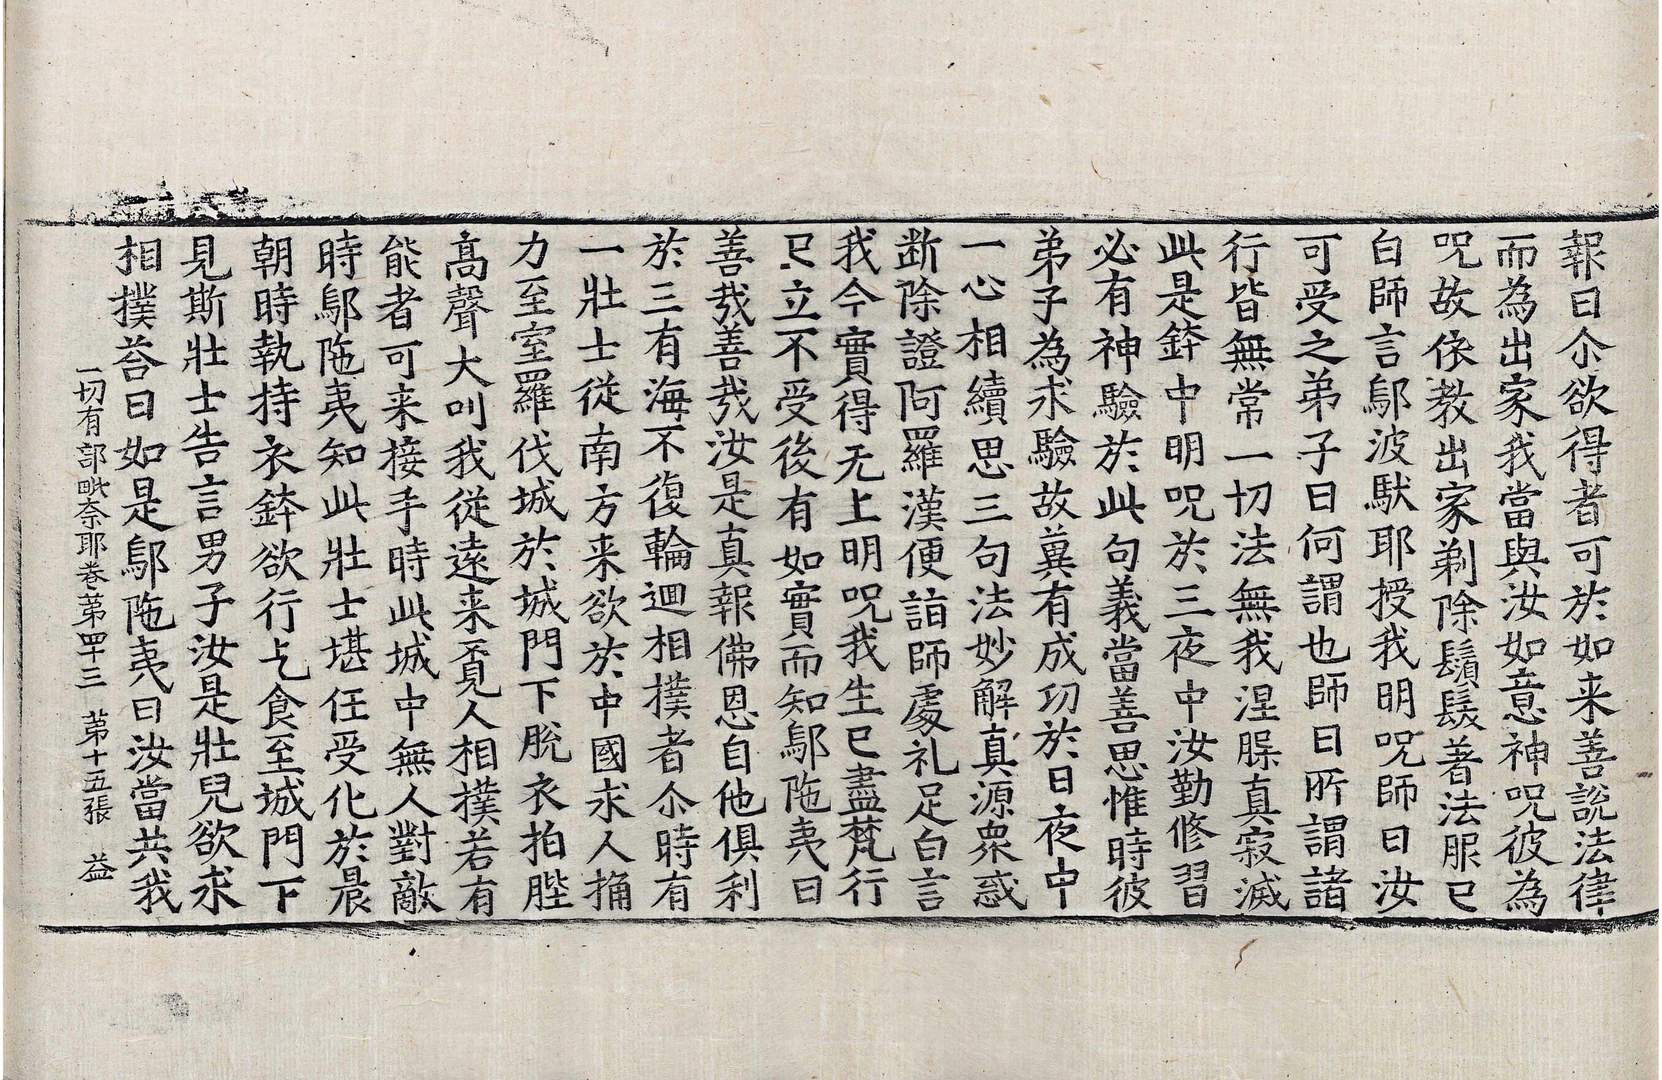 報曰尒欲得者可於如来善說法律
而為出家我當與汝如意神呪彼為
呪故依教出家剃除鬚髮著法服已
白師言鄔波馱耶授我明呪師曰汝
可受之弟子曰何謂也師曰所謂諸
行皆無常一切法無我涅槃真寂滅
此是鉢中明呪於三夜中汝勤修習
必有神驗於此句義當善思惟時彼
弟子為求驗故冀有成㓛於日夜中
一心相續思三句法妙解真源衆惑
断除證阿羅漢便詣師處礼足白言
我今實得无上明呪我生已盡梵行
已立不受後有如實而知鄔陁夷曰
善哉善哉汝是真報佛恩自他俱利
於三有海不復輪迴相撲者尒時有
一壯士從南方来欲於中國求人捔
力至室羅伐城於城門下脫衣拍髀
高聲大叫我從遠来覔人相撲若有
能者可来接手時此城中無人對敵
時鄔陁夷知此壯士堪任受化於晨
朝時執持衣鉢欲行乞食至城門下
見斯壯士告言男子汝是壯兒欲求
相撲荅曰如是鄔陁夷曰汝當共我
一切有部毗奈耶卷第四十三 第十五張 益